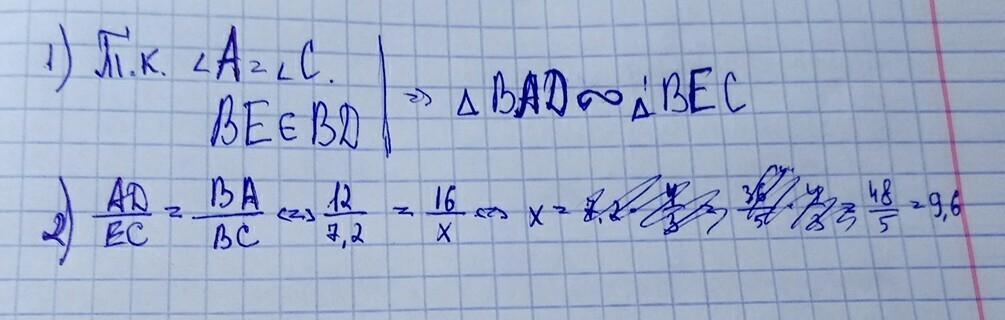 1) Т.к. ∠A = ∠C.
BE ∈ BD
=> △BAD ∞ △BEC
2) AD/EC = BA/BC <=> 12/7,2 = 16/x <=> x = 48/5 = 9,6